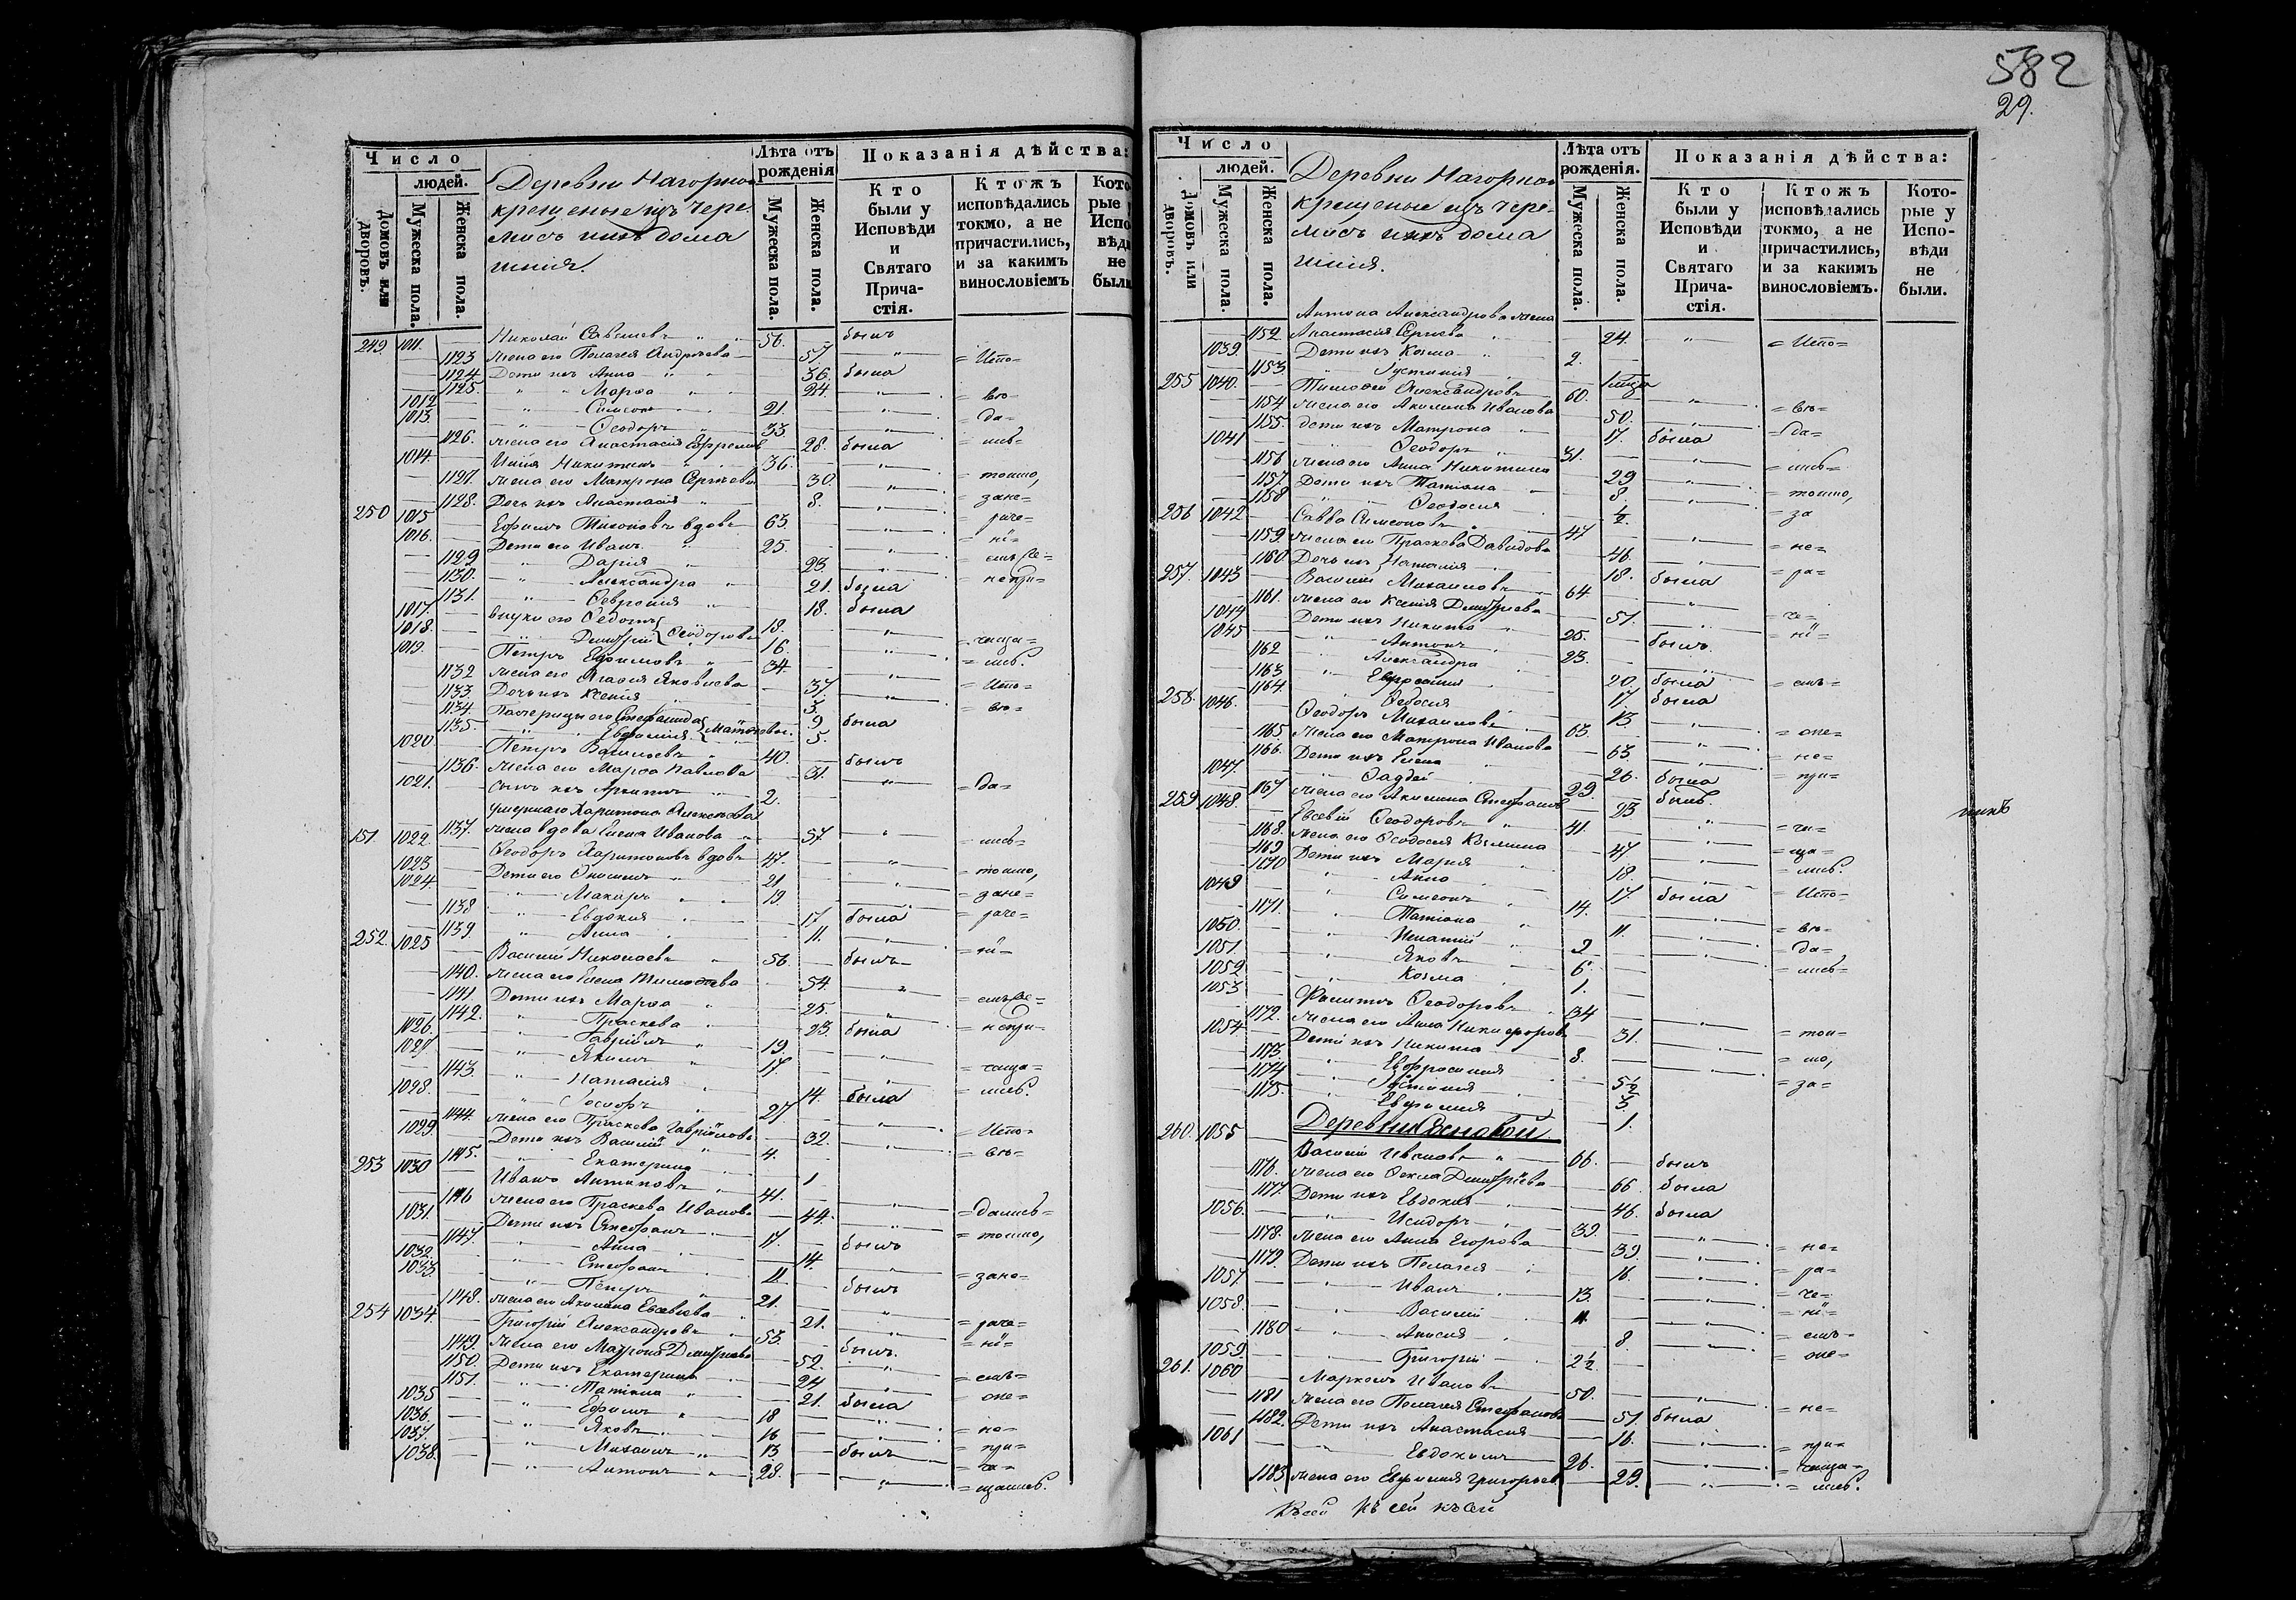 582
29.
Число
людей.
Домовъ или дворовъ.
Мужеска пола.
Женска пола.
Деревни Нагорно
крещеные изъ чере-
мисъ ихъ дома
шнія.
Лѣта отъ рожденія
Мужеска пола.
Женска пола.
Показанія дѣйства:
Кто были у Исповѣди и Святаго Прича- стія.
Ктожъ исповѣдались токмо, а не причастились, и за какимъ винословіемъ
Кото- рые у Испо- вѣди не были
249. 1011. Николай Савельевъ 56. былъ
1123 жена его Пелагея Андреева 57. = Испо=
1124 Дети ихъ Анна 36. была
1125. Марѳа 24. = вѣ=
1012 Симеонъ 21. = да=
1013. Ѳеодоръ 33 = лись=
1126. жена его Анастасія Ефремова 28. была
1014. Илія Никитинъ 36. = токмо,
1127. жена его Матрона Сергѣева 30. = зане=
1128. Дочь ихъ Анастасія 8. = раче=
250 1015 Ефимъ Тихоновъ вдовъ 63. = ні=
1016. Дети его Иванъ 25. = емъ Не=
1129 Дарія 23. = непри=
1130. Александра 21. была
1131. Ѳевронія 18. была
1017. внуки его Ѳедотъ 18. = чаща=
1018. Димитрій Ѳеодоровы 16. = лись.
1019. Петръ Ефимовъ 34. = Испо=
1132 жена его Агаѳія Яковлева 37. = вѣ=
1133. Дочь ихъ Ксенія 3.
1134. Падчерицы его Стефанида 9 была
1135. Евфимія Матѳеевы. 5.
1020 Петръ Васильевъ 40. былъ
1136. жена его Марѳа Павлова 31. = да=
1021. сынъ ихъ Архипъ 2.
умершаго Харитона Алексѣева
1137. жена вдова Елена Иванова 57. = лись=
151. 1022. Ѳеодоръ Харитоновъ вдовъ 47. = токмо,
1023 Дети его Онисимъ 21 = зане=
1024 Макаръ 19. = раче=
1138 Евдокия 17. была
1139. Анна 11. = ні=
252. 1025 Василій Николаевъ 56. былъ
1140. жена его Елена Тимоѳеева 54. = емъ не=
1141. Дети ихъ Марѳа 25. = непри-
1142. Праскева 23. была
1026. Гавріилъ 19. = чаща=
1027. Якимъ 17. = лись.
1143. Наталия 14. была
1028. Ѳеодоръ 27 = Испо=
1144. жена его Праскева Гаврилова 32. = вѣ=
1029. Дети ихъ Василій 4.
1145. Екатерина 1
253 1030 Иванъ Антиповъ 41. = дались=
1146 жена его Праскева Иванова 44. = токмо,
1031. Дети ихъ Стефанъ 17. былъ
1147. Анна 14. = зане=
1032. Стефанъ 11. былъ
1033. Петръ 21. = раче=
1148. жена его Акилина Евсевіева 21. = ні=
254 1034. Григорій Александровъ 53. былъ.
1149. жена его Матрона Дмитріева 52. = емъ=
1150. Дети ихъ Екатерина 24 = оне=
1151. Татіана 21. была
1035 Ефимъ 18 = не=
1036. Яковъ 16 = при=
1037. Михаилъ 13 былъ = ча=
1038. Антонъ 28. = щались.
Число
людей.
Домовъ или дворовъ.
Мужеска пола.
Женска пола.
Деревни Нагорно
крещеные изъ чере-
мисъ ихъ дома
шнія.
Лѣта отъ рожденія.
Мужеска пола.
Женска пола.
Показанія дѣйства:
Кто были у Исповѣди и Святаго Прича- стія.
Ктожъ исповѣдались токмо, а не причастились, и за какимъ винословіемъ.
Кото- рые у Испо- вѣди не были.
Антона Александрова жена
1152 Анастасія Сергѣева 24. = Испо=
1039. Дети ихъ Козма 2.
1153. Іустинія 1 года
255 1040. Тимоѳей Александровъ 60. = вѣ=
1154. жена его Акилина Иванова 50. = да=
1155. дети ихъ Матрона 17. была
1041 Ѳеодоръ 31. = лись=
1156 жена его Анна Никитина 29 = токмо,
1157. Дети ихъ Татіана 8. = за
1158 Ѳеодосія ½.
256 1042 Савва Симеоновъ 47 = не=
1159. жена его Праскева Давидова 46. = ра=
1160. Дочь ихъ Наталія 18. была
257. 1043 Василій Михайловъ 64 = че=
1161. жена его Ксенія Дмитріева 51. = ні=
1044 Дети ихъ Никита 25. былъ.
1045 Антонъ 23.
1162 Александра 20. была = емъ=
1163 Евфросинія 17. была
1164. Ѳедосія 13.
258. 1046. Ѳеодоръ Михайловъ 63. = оне=
1165. жена его Матрона Иванова 63. = не=
1166. Дети ихъ Елена 26. была = при=
1047. Ѳаддей 29. былъ.
1167 жена его Акилина Стефанова 23 = ча=
259 1048. Евсевій Ѳеодоровъ 41. = ща=
1168. жена его Ѳеодосія Козмина 47. = лись.
1169 Дети ихъ Марія 18. = Испо=
1170 Анна 17. была
1049 Симеонъ 14. = вѣ=
1171. Татіана 11. = да=
1050. Игнатій 2 = лись=
1051. Яковъ 6.
1052 Козма 1.
1053 Филиппъ Ѳеодоровъ 34 = ток=
1172. жена его Анна Никифорова 31. = мо,
1054. Дети ихъ Никита 8. = за=
1173 Евфросинія 5½
1174 Іустинія 3.
1175. Евфимія 1.
Деревни Сосновой
260. 1055 Василій Ивановъ 66. былъ
1176. жена его Ѳекла Дмитріева 66. была
1177. Дети ихъ Евдокия 46. была
1056. Исидоръ 39. = не=
1178. жена его Анна Егорова 39. = ра=
1179. Дети ихъ Пелагея 16. = че=
1057. Иванъ 13. = ні=
1058. Василій 11. = емъ=
1180 Анисія 8. = оне=
1059 Григорій 2½.
261. 1060 Маркелъ Ивановъ 50. = не=
1181 жена его Пелагея Стефанова 51. была
1182. Дети ихъ Анастасия 16. = при=
1061 Евдокимъ 26. = чаща=
1183 жена его Евфимия Григорьева 29. = лись.
къ сей къ сей